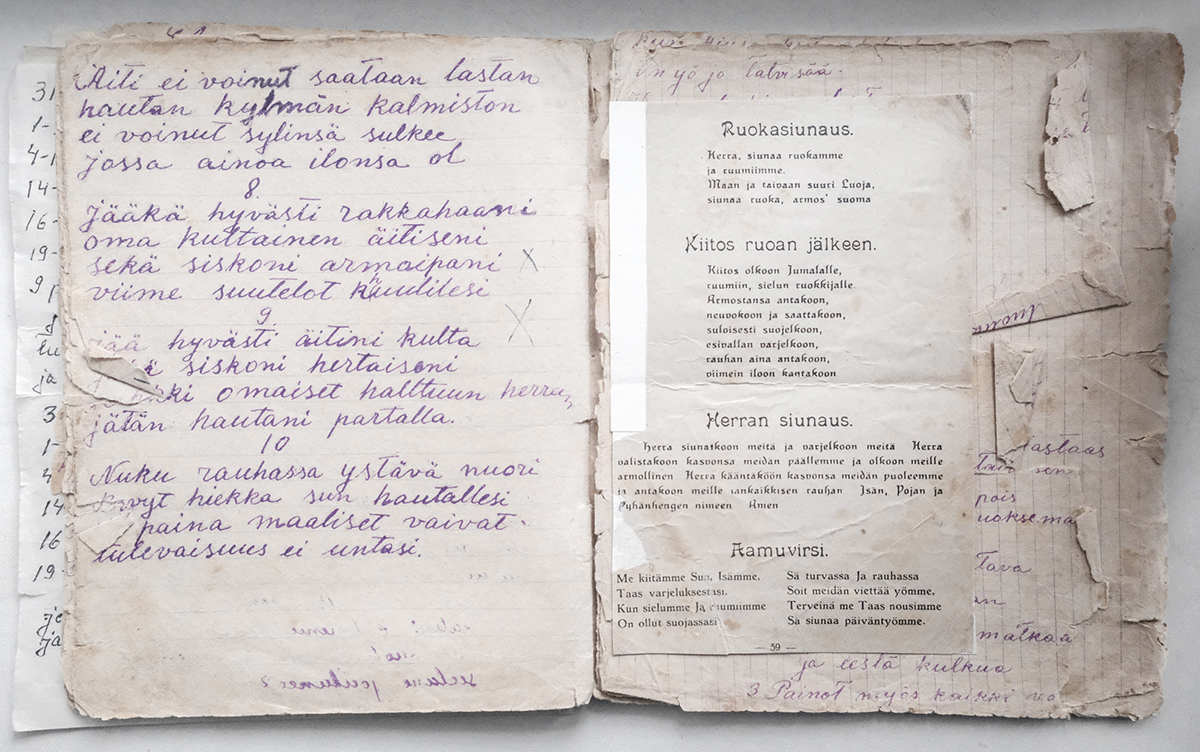 31
1-
4-1
14-
16-
19-
91
ja
3
1-
14
16
19-
ja
Äiti ei voinut saataan lastan
hautan kylmän kalmiston
ei voinut sylinsä sulkee
jossa ainoa ilonsa ol
8.
Jääkä hyvästi rakkahaani
oma kultainen äitiseni
sekä siskoni armaipani
viime suutelot
9
jää hyvästi äitini kulta
siskoni hertaiseni
omaiset halltuun herran
jätän hautani partalla.
10
Nuku rauhassa ystävä nuori
kevyt hiekka sun hautallesi
paina maaliset vaivat.
tulevaisuus ei untasi.
On yö jo talvisää.
Ruokasiunaus.
Herra, siunaa ruokamme
ja ruumiimme.
Maan ja taivaan suuri Luoja,
siunaa ruoka, armos' suoma
Kiitos ruoan jälkeen.
Kiitos olkoon Jumalalle,
ruumiin, sielun ruokkijalle.
Armostansa antakoon,
neuvokoon ja saattakoon,
suloisesti suojelkoon,
esivallan varjelkoon,
rauhan aina antakoon,
viimein iloon kantakoon
Herran siunaus.
Herra siunatkoon meitä ja varjelkoon meitä Herra
valistakoon kasvonsa meidän päällemme ja olkoon meille
armollinen Herra kääntäköön kasvonsa meidän puoleemme
ja antakoon meille iankaikkisen rauhan Isän, Pojan ja
Pyhänhengen nimeen Amen
Aamuvirsi.
Me kiitämme Sua, Isämme,
Taas varjeluksestasi.
Kun sielumme Ja ruumiimme
On ollut suojassasi
Sä turvassa Ja rauhassa
Soit meidän viettää yömme.
Terveinä me Taas nousimme
Sä siunaa päiväntyömme.
— 59 —
lastaas
pois
uoksema
tava
an
matkaa
ja eestä kulkua
3 Painot myös kaikki va